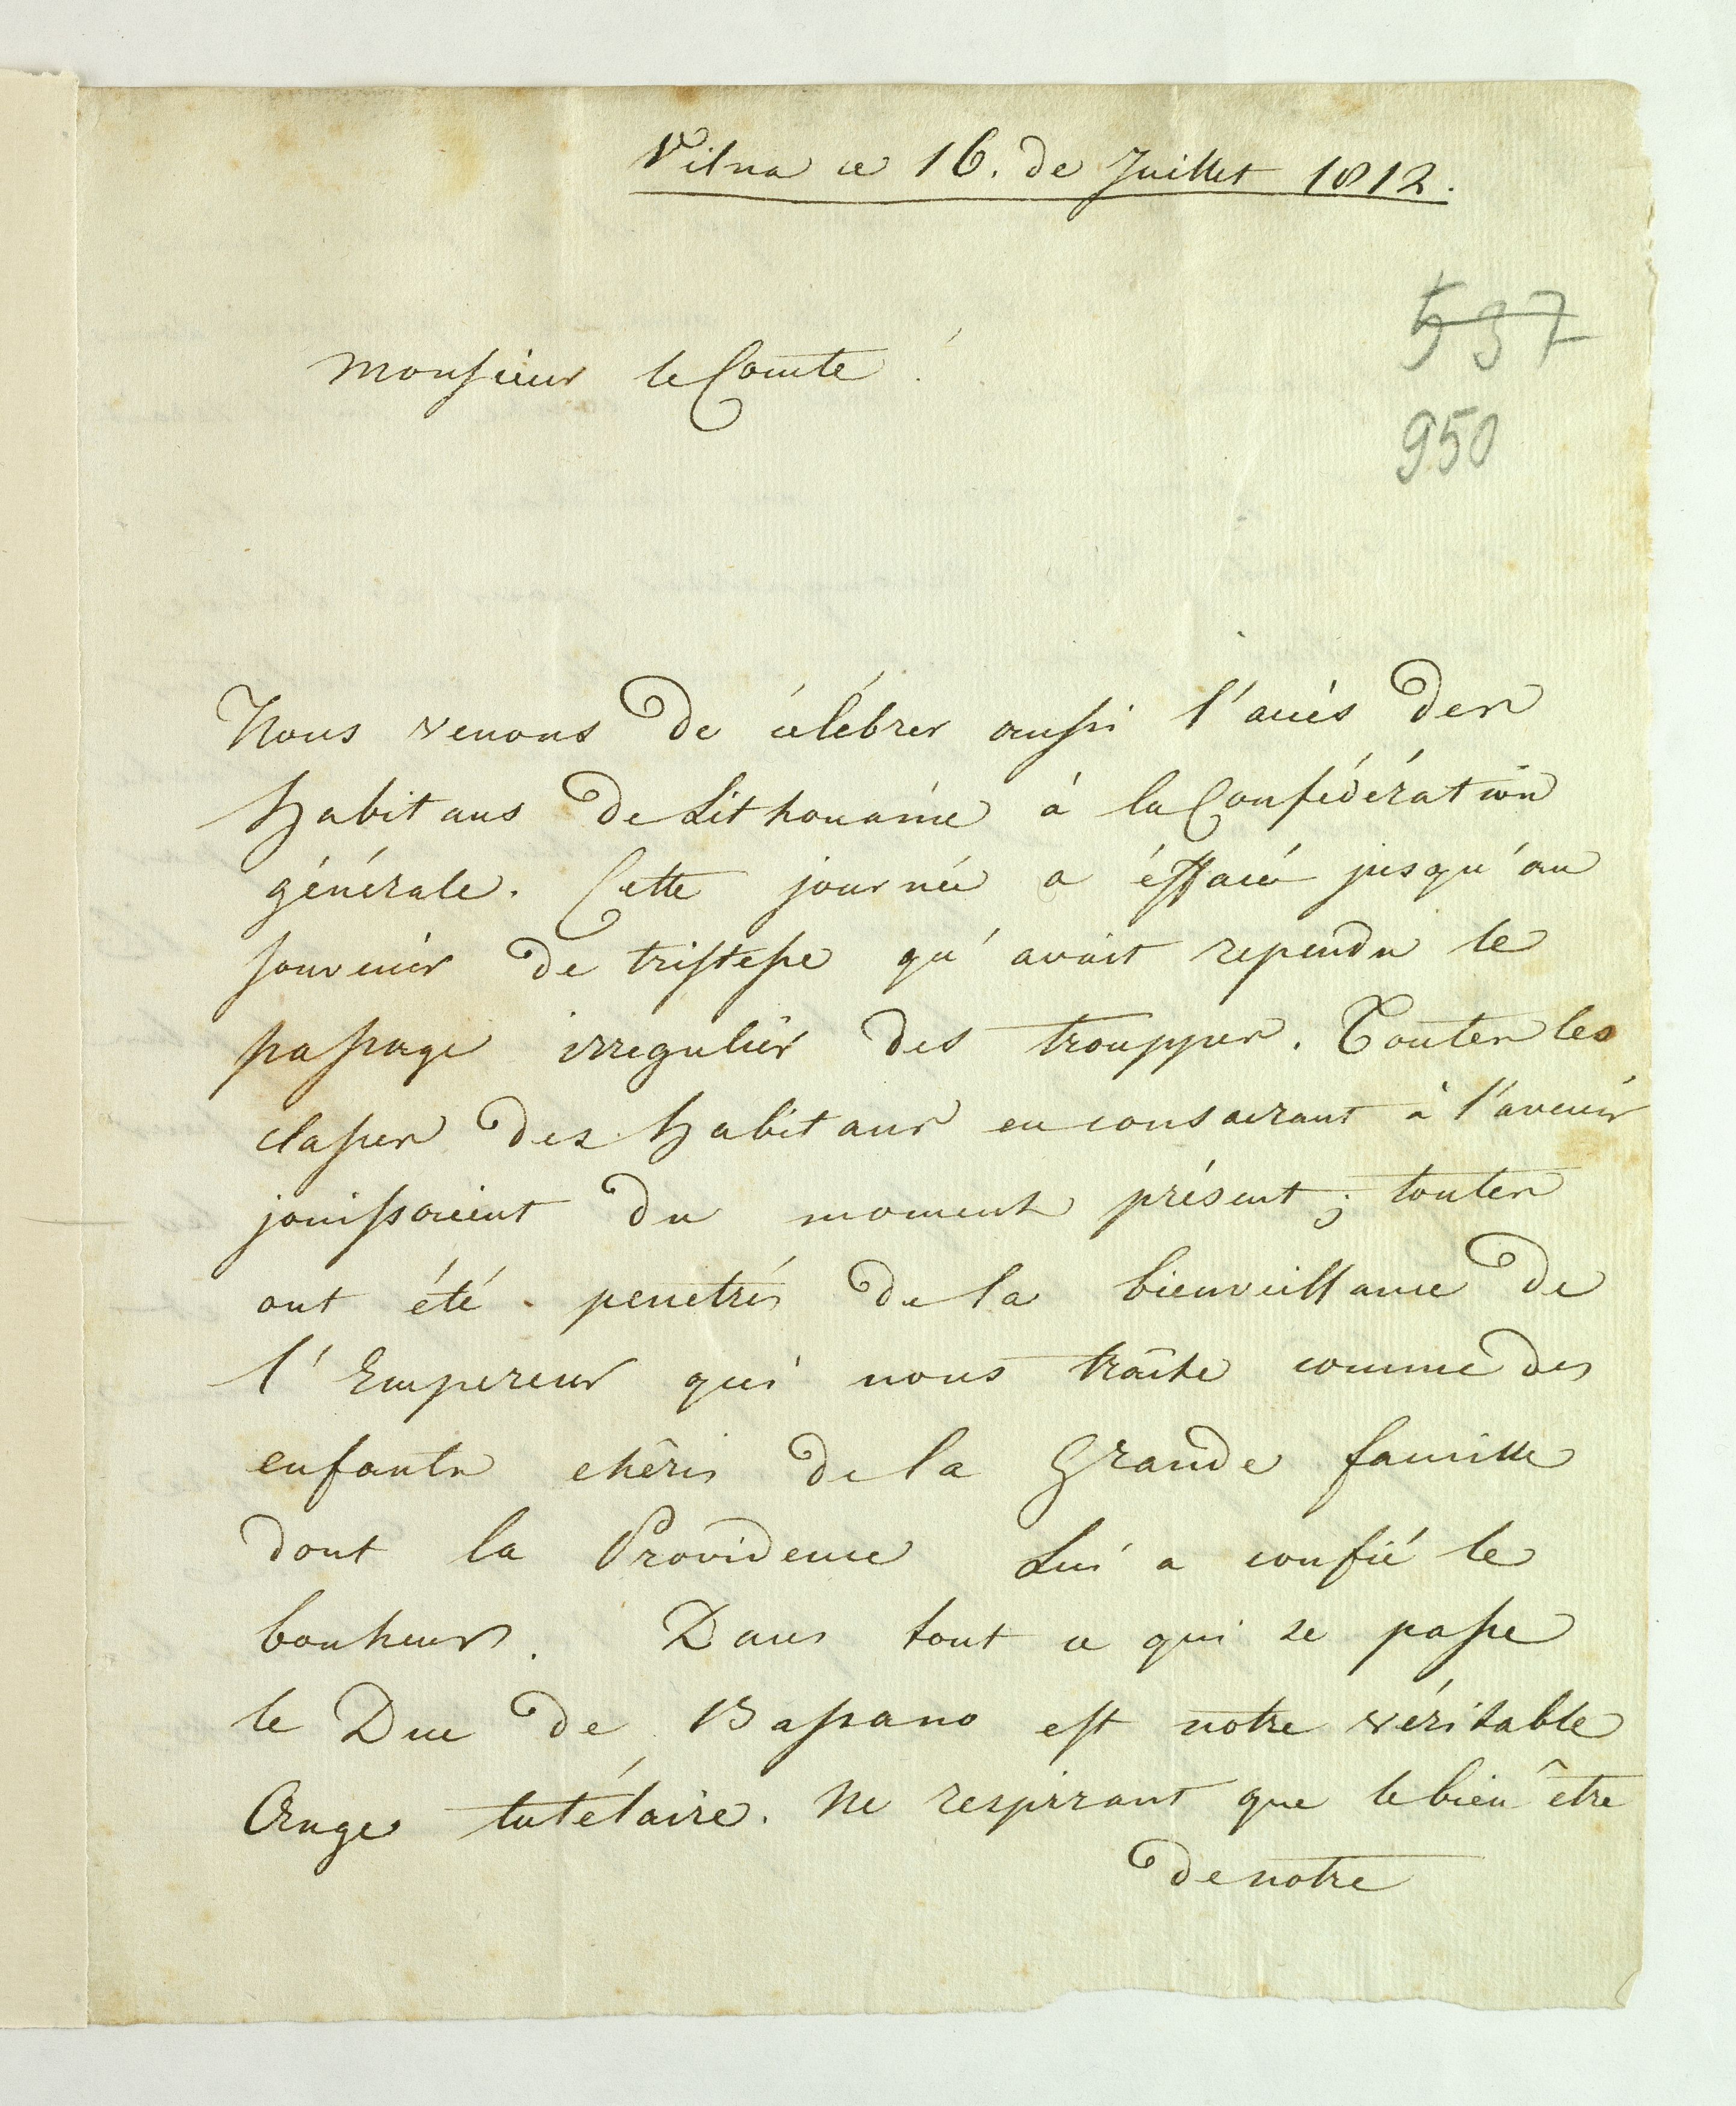 Vilna ce 16. de Juillet 1812.
537
Monsieur le Comte!
950
Nous venons de célébrer aussi l'accés des
habitans de Lithouanie à la Confédération
générale. Cette journée a éffacé jusqu'au
souvenir de tristesse qu'avait rependu le
passage irregulier des trouppes. Toutes les
classes des habitans en consacrant à l'avenir
jouissoient du moment présent; toutes
ont été penetrés de la bienveillance de
l'Empereur qui nous traîte comme des
enfants chêris de la Grande famille
dont la Providence Lui a confié le
bonheur. Dans tout ce qui se passe
le Duc de Bassano est notre véritable
Ange tutélaire. Ne respirant que le bien être
de notre